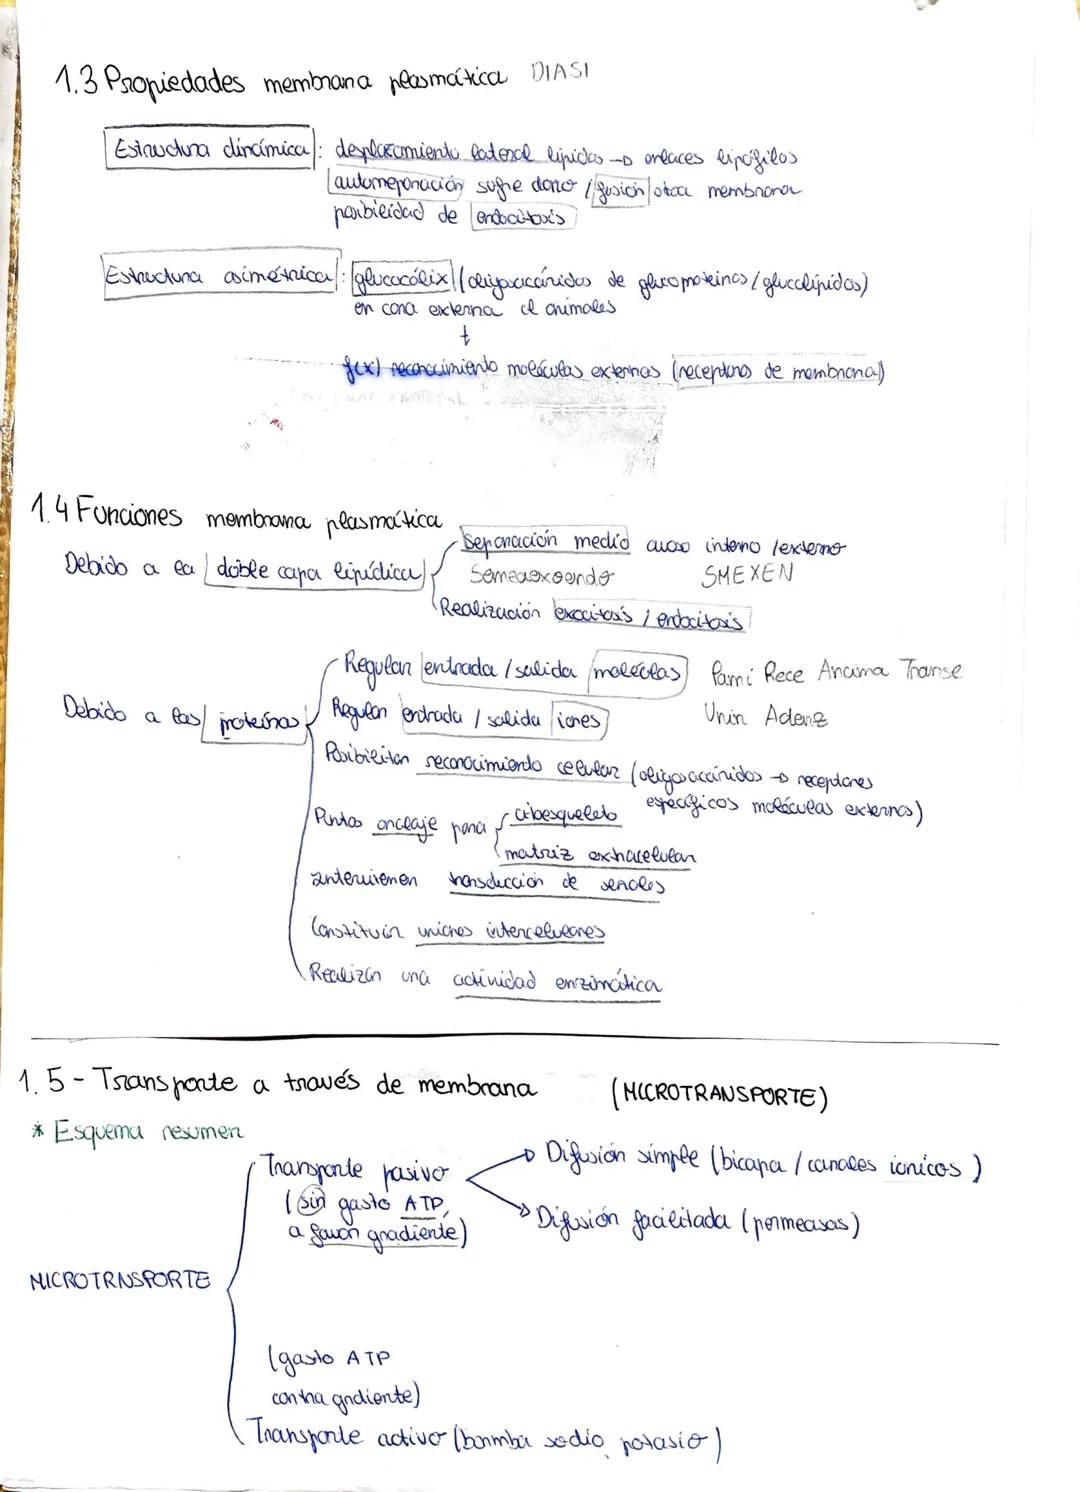 1.3 Propiedades membrana plasmática DIASI
Estructura dinámica: desplazamiento lateral lípidos → enlaces lipófilos
autoreparación sufre daño / fusión otra membrana
posibilidad de endocitosis
Estructura asimétrica: glucocálix (oligosacáridos de glucoproteínas / glucolípidos)
en cara externa cl animales
+
f(x) reconocimiento moléculas externas (receptores de membrana)
1.4 Funciones membrana plasmática
Debido a la doble capa lipídica
Separación medio acuoso interno / externo
SMEXEN
Realización exocitosis / endocitosis
Debido a las proteínas
Regulan entrada / salida moléculas
Pami Rece Ancima Transe
Regulan entrada / salida iones
Unin Adenz
Posibilitan reconocimiento celular (oligosacáridos → receptores
específicos moléculas externas)
Puntos anclaje para citoesqueleto
matriz extracelular
intervienen transducción de señales
Constituir uniones intercelulares
Realizan una actividad enzimática
1.5 - Transporte a través de membrana (MICROTRANSPORTE)
* Esquema resumen
Transporte pasivo → Difusión simple (bicapa / canales iónicos)
(sin gasto ATP,
a favor gradiente) → Difusión facilitada (permeasas)
MICROTRNSPORTE
(gasto ATP
contra grdiente)
Transporte activo (bormba sodio potasio)